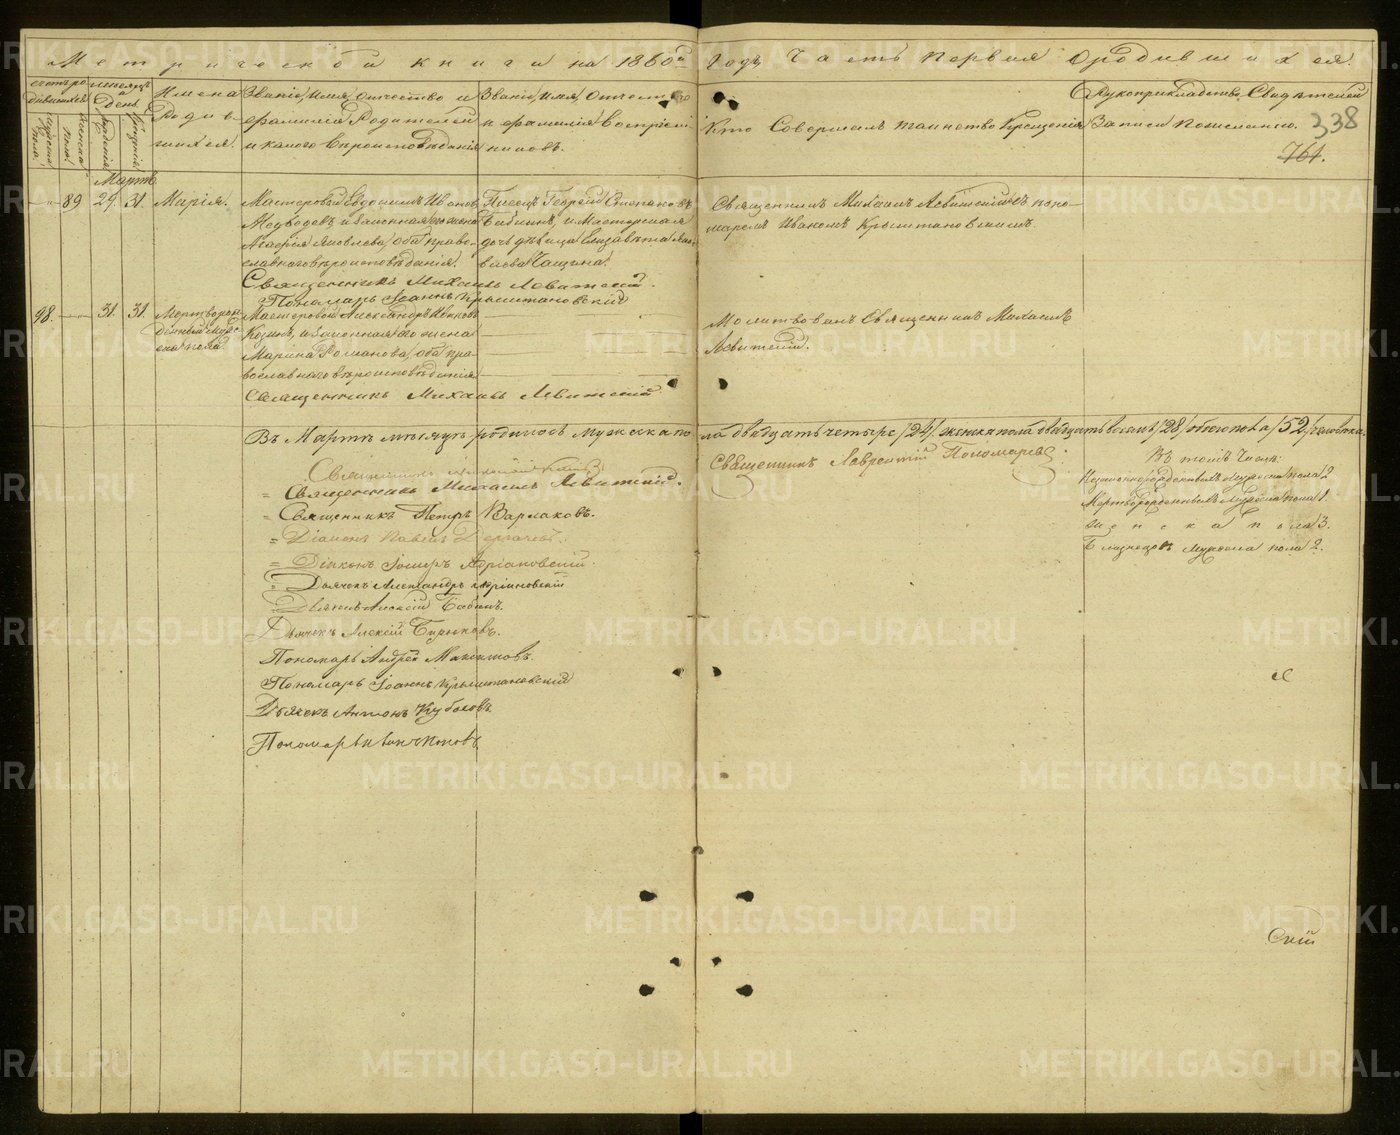 Метрической книги на 1860й годъ Часть первая о родившихся.
Счетъ родившихся
Мужеска пола.
Женска пола.
Месяцъ и день
Рожденія
Крещенія
Имена Родившихся.
Званіе, Имя, Отчество и фамилія Родителей и какого Вѣроисповѣданія
Званіе, Имя, Отчество и фамилія Воспріемниковъ.
Кто Совершалъ таинство Крещенія
Рукоприкладство Свидѣтелей Записи по желанію.
338
761.
Мартъ
89 29. 31. Марія.
Мастеровой Евдокимъ Ивановъ
Медведевъ и законная его жена
Агафія Яковлева, оба православнаго вѣроисповѣданія.
Писецъ Георгій Степановъ
Бабинъ, и Мастерская
дочь дѣвица Елизавета
Чащина.
Священникъ Михаилъ Левитскій съ пономаремъ Иваномъ Крыштановскимъ.
Священникъ Михаилъ Левитскій.
Пономарь Іоаннъ Крыштановскій
98. 31. 31. Мертворожденный мужеска пола
Мастеровой Александръ Ивановъ
и законная его жена
Марина Романова, оба православнаго вѣроисповѣданія
Молитвовалъ Священникъ Михаилъ
Левитскій.
Священникъ Михаилъ Левитскій
Въ Мартѣ мѣсяцѣ родилось мужеска пола двадцать четыре /24/ женска пола двадцать восемь /28/ обоего пола /52/ человека.
Священникъ
Священникъ Лаврентій Пономаревъ.
Въ томъ числѣ:
= Священникъ Михаилъ Левитскій.
Незаконнорожденныхъ мужеска пола 2
= Священникъ Петръ Варлаковъ.
Мертворожденныхъ мужеска пола 1.
женска пола 3.
= Діаконъ Павелъ
Близнецовъ мужеска пола 2.
= Діаконъ Адріановскій.
Дьячекъ Александръ Адріановскій
Дьячекъ Алексій Бабинъ.
Дьячекъ Алексій Бирюковъ.
Пономарь Андрей Максимовъ.
Пономарь Іоаннъ Крыштановскій
Дьячекъ Антонъ Кубасовъ
Пономарь Иванъ
скій
METRIKI.GASO-URAL.RU